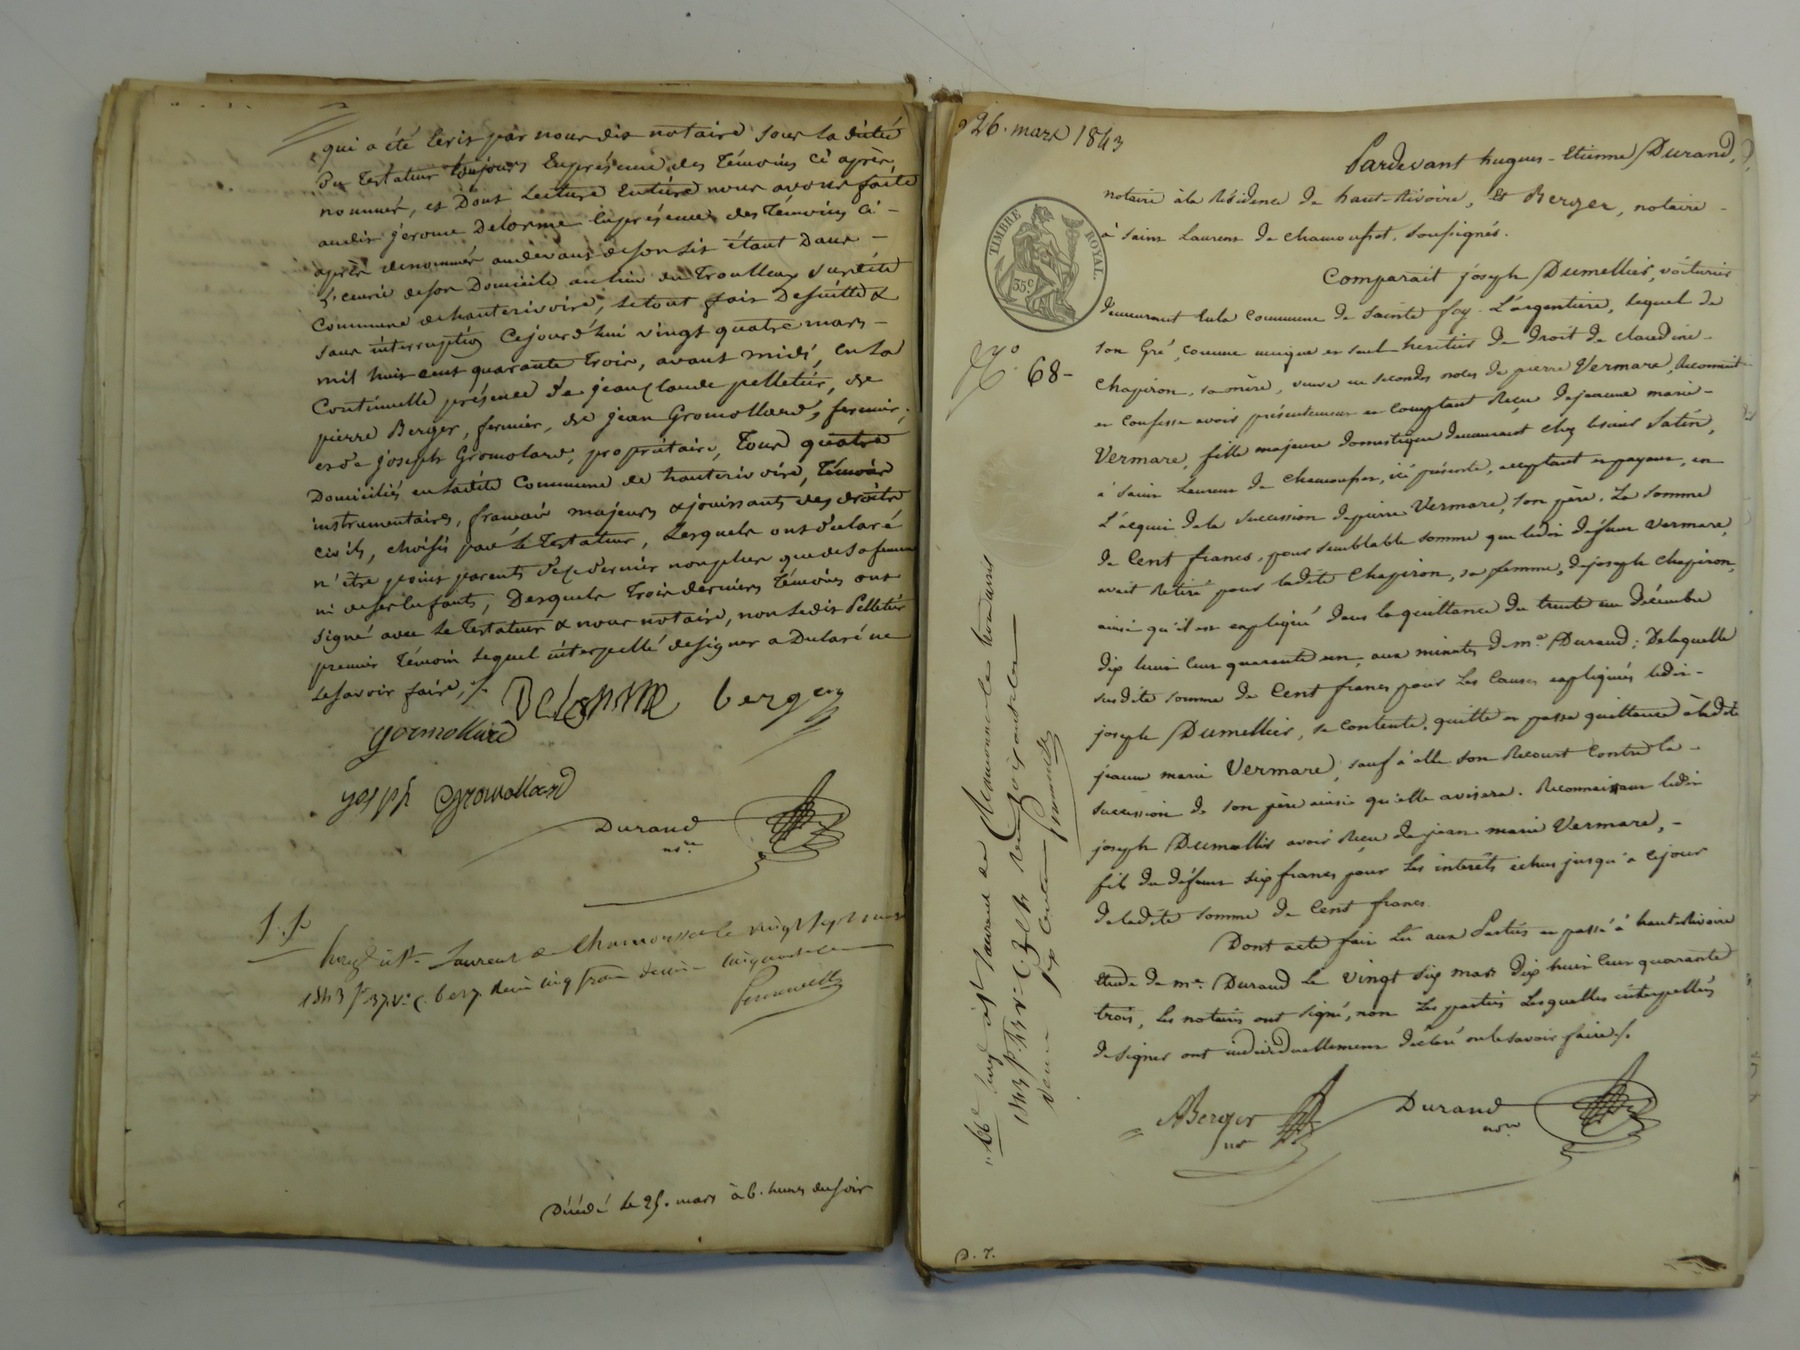 qui a été Ecrit par nous dit notaire sous la dictée
du Testateur toujours En présence des Témoins Ci après
nommés, et Dont Lecture Entière nous avons faite
audit jerome Delorme En présence des Témoins Ci-
après dénommés au devant de son lit étant Dans -
L'ecurie de son Domicile au lieu du Trouilleux susdite
Commune de hauterivoire, le tout fait De suitte &
sans interruption Cejourd'hui vingt quatre mars -
mil huit cent quarante trois, avant midi, En la
Continuelle présence de jean Claude pelletier, de
pierre Berger, fermier, de jean Gromollard, fermier,
et de joseph Gromolard, propriétaire, Tous quatre
Domiciliés en Ladite Commune de hauterivoire, Témoins
instrumentaires, français majeurs & jouissants des droits
civils, choisis par le Testateur, Lesquels ont déclaré
n'être point parents de ce dernier non plus que de sa femme
ni de ses Enfants, Desquels Trois derniers Témoins ont
Signé avec Le Testateur & nous notaire, non Ledit Pelletier
premier Témoin Lequel interpellé de signer a Déclaré ne
le savoir faire./.
Delorme berger
gromollard
joseph gromollard
Durand
nore
f. f.
Enregistré à St Laurent de Chamousset le vingt sept mars
1843 fo 37 vo c. 6 et 7. Reçu cinq francs decime cinquante c
Décédé le 25. mars à 6. heures du soir
26. mars 1843
Pardevant hugues-Etienne Durand,
notaire à la Résidence de haut-Rivoire, Et Berger, notaire -
à Saint Laurent de Chamousset, soussignés.
TIMBRE ROYAL.
35 c
Comparait joseph Dumellier, voiturier
demeurant En la Commune de Sainte foy-L'argentière, lequel de
No 68-
son Gré, comme unique et seul heritier de Droit de claudine -
Chapiron, sa mère, veuve en secondes noces de pierre Vermare, Reconnait -
et Confesse avoir présentement et Comptant Reçu de jeanne marie -
Vermare, fille majeure domestique demeurant chez le sieur Satin,
à Saint Laurent de Chamousset, ici présente, acceptant et payant, en
L'acquit de la Succession de pierre Vermare, son père, La Somme
de Cent francs, pour semblable somme que ledit défunt Vermare,
avait Retiré pour ladite Chapiron, sa femme, de joseph Chapiron,
ainsi qu'il est expliqué dans la quittance du trente un décembre
dix huit Cent quarante un, aux minutes de me Durand; De laquelle
susdite somme de Cent francs pour Les Causes expliquées ledit -
joseph Dumellier, se contente, quitte et passe quittance à ladite
jeanne marie Vermare, sauf à elle son Recours Contre la -
succession de son père ainsi qu'elle avisera. Reconnaissant ledit
joseph Dumellier avoir Reçu de jean marie Vermare, -
fils du défunt six francs pour Les intérêts échus jusqu'à cejour
de ladite somme de Cent francs.
Dont acte fait Lu aux Parties et passé à hauterivoire
Etude de me Durand Le vingt six mars dix huit Cent quarante
trois, Les notaires ont signé, non Les parties Lesquelles interpellées
de signer ont individuellement déclaré ne le savoir faire./.
ABerger
nre
Durand
nore
D. 7.